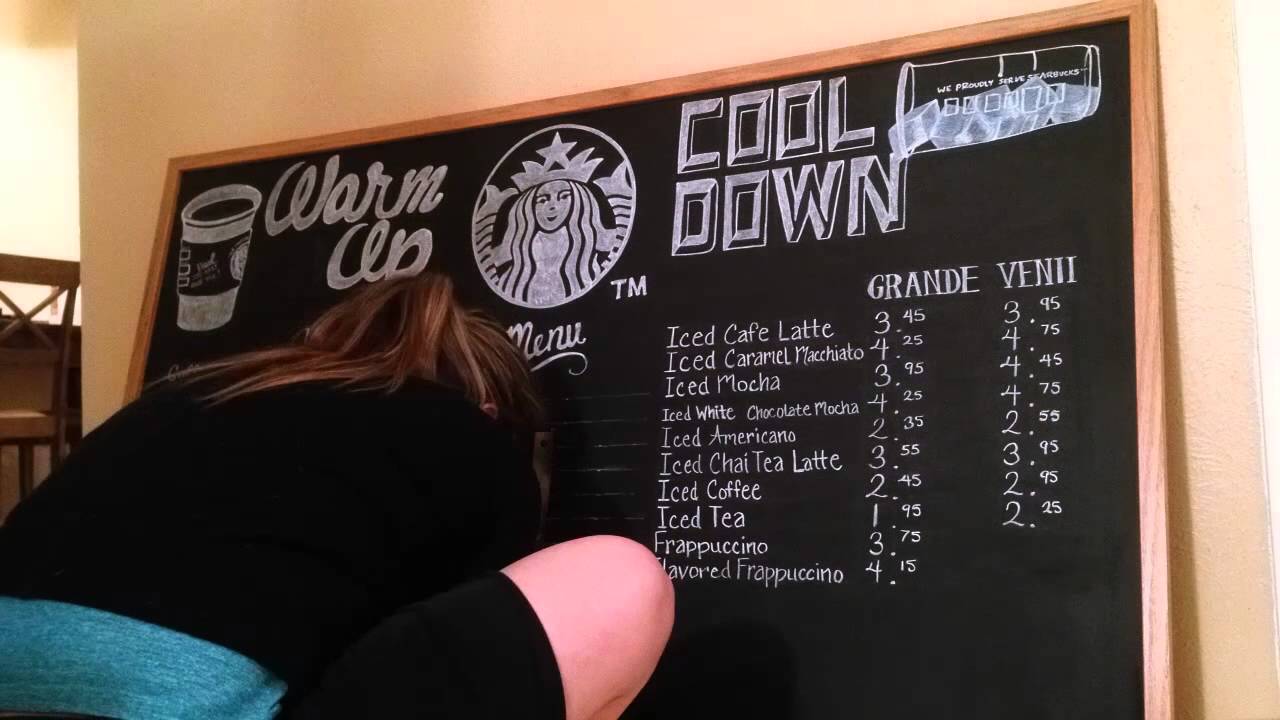 Warm
Up
TM
Menu
COOL
DOWN
WE PROUDLY SERVE STARBUCKS
GRANDE VENTI
Iced Cafe Latte 3.45 3.95
Iced Caramel Macchiato 4.25 4.75
Iced Mocha 3.95 4.45
Iced White Chocolate Mocha 4.25 4.75
Iced Americano 2.35 2.55
Iced Chai Tea Latte 3.55 3.95
Iced Coffee 2.45 2.95
Iced Tea 1.95 2.25
Frappuccino 3.75
Flavored Frappuccino 4.15